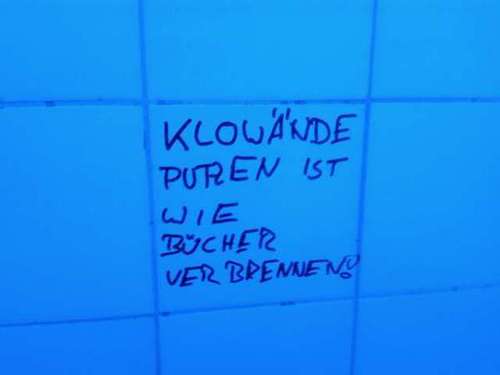 KLOWÄNDE
PUREN IST
WIE
BÜCHER
VERBRENNEN!